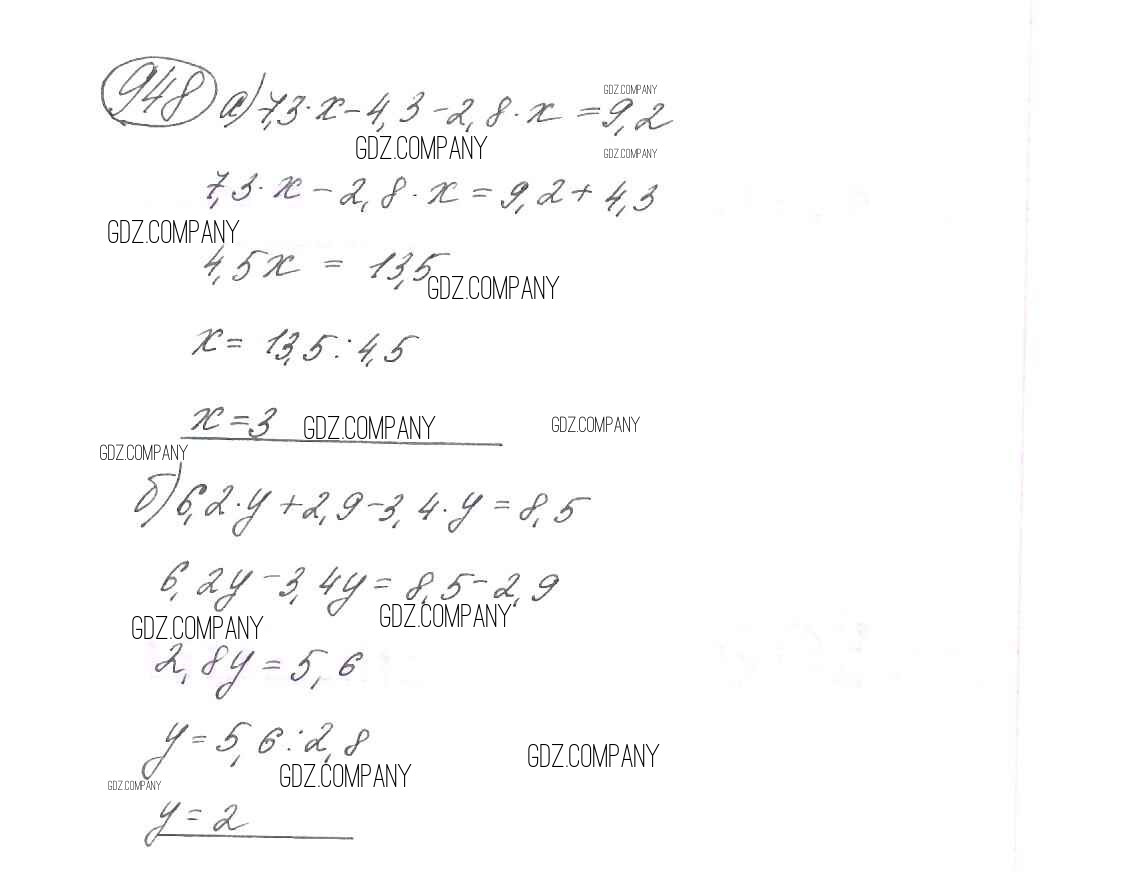 948 а) 7,3·x-4,3-2,8·x=9,2
GDZ.COMPANY
GDZ.COMPANY
GDZ.COMPANY
7,3·x-2,8·x=9,2+4,3
GDZ.COMPANY
4,5x = 13,5
GDZ.COMPANY
x= 13,5:4,5
x=3
GDZ.COMPANY
GDZ.COMPANY
GDZ.COMPANY
б) 6,2·y+2,9-3,4·y=8,5
6,2y-3,4y=8,5-2,9
GDZ.COMPANY
GDZ.COMPANY
2,8y=5,6
y=5,6:2,8
GDZ.COMPANY
GDZ.COMPANY
GDZ.COMPANY
y=2